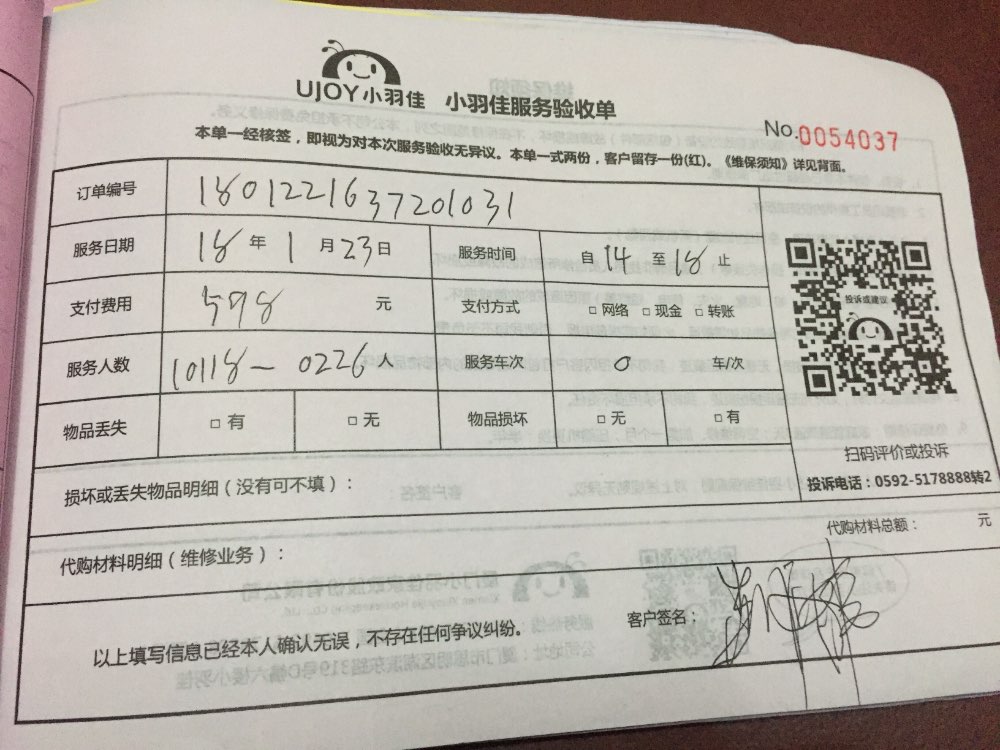 UJOY小羽佳 小羽佳服务验收单
No.0054037
本单一经核签，即视为对本次服务验收无异议。本单一式两份，客户留存一份(红)。《维保须知》详见背面。
订单编号 1801221637201031
服务日期 18 年 1 月 23 日 服务时间 自 14 至 18 止
支付费用 598 元 支付方式 □ 网络 □ 现金 □ 转账
服务人数 10118— 0226 服务车次 0 车/次
物品丢失 □ 有 □ 无 物品损坏 □ 无 □ 有
投诉或建议
扫码评价或投诉
投诉电话：0592-5178888转2
损坏或丢失物品明细（没有可不填）：
代购材料明细（维修业务）： 代购材料总额： 元
以上填写信息已经本人确认无误，不存在任何争议纠纷。 客户签名：